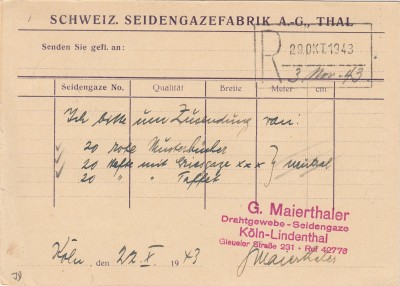 SCHWEIZ. SEIDENGAZEFABRIK A.-G., THAL
Senden Sie gefl. an:
R
29. OKT. 1943
3. Nov. 43
Seidengaze No. Qualität Breite Meter cm
Ich bitte um Zusendung von:
20 rote Musterbücher
20 Hefte mit Griesgaze xxx
20 " " Taffet
G. Maierthaler
Drahtgewebe - Seidengaze
Köln-Lindenthal
Gleueler Straße 231 · Ruf 42778
Köln, den 22. X. 1943
G Maierthaler